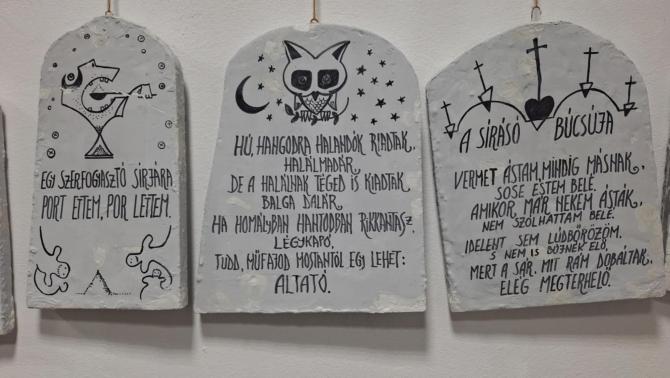 EGY SZERFOGYASZTÓ SÍRJÁRA
PORT ETTEM, POR LETTEM.
HÚ, HANGODRA HALANDÓK RIADTAK,
HALÁLMADÁR,
DE A HALÁLNAK TÉGED IS KIADTAK,
BALGA DALÁR,
HA HOMÁLYBAN HANTODBAN RIKKANTASZ,
LÉGYKAPÓ,
TUDD, MŰFAJOD MOSTANTÓL EGY LEHET:
ALTATÓ.
A SÍRÁSÓ BÚCSÚJA
VERMET ÁSTAM, MINDIG MÁSNAK,
SOSE ESTEM BELÉ.
AMIKOR MÁR NEKEM ÁSTÁK,
NEM SZÓLHATTAM BELÉ.
IDELENT SEM LÚDBŐRÖZÖM,
S NEM IS BÚJNÉK ELŐ,
MERT A SÁR, MIT RÁM DOBÁLTAK,
ELÉG MEGTERHELŐ.